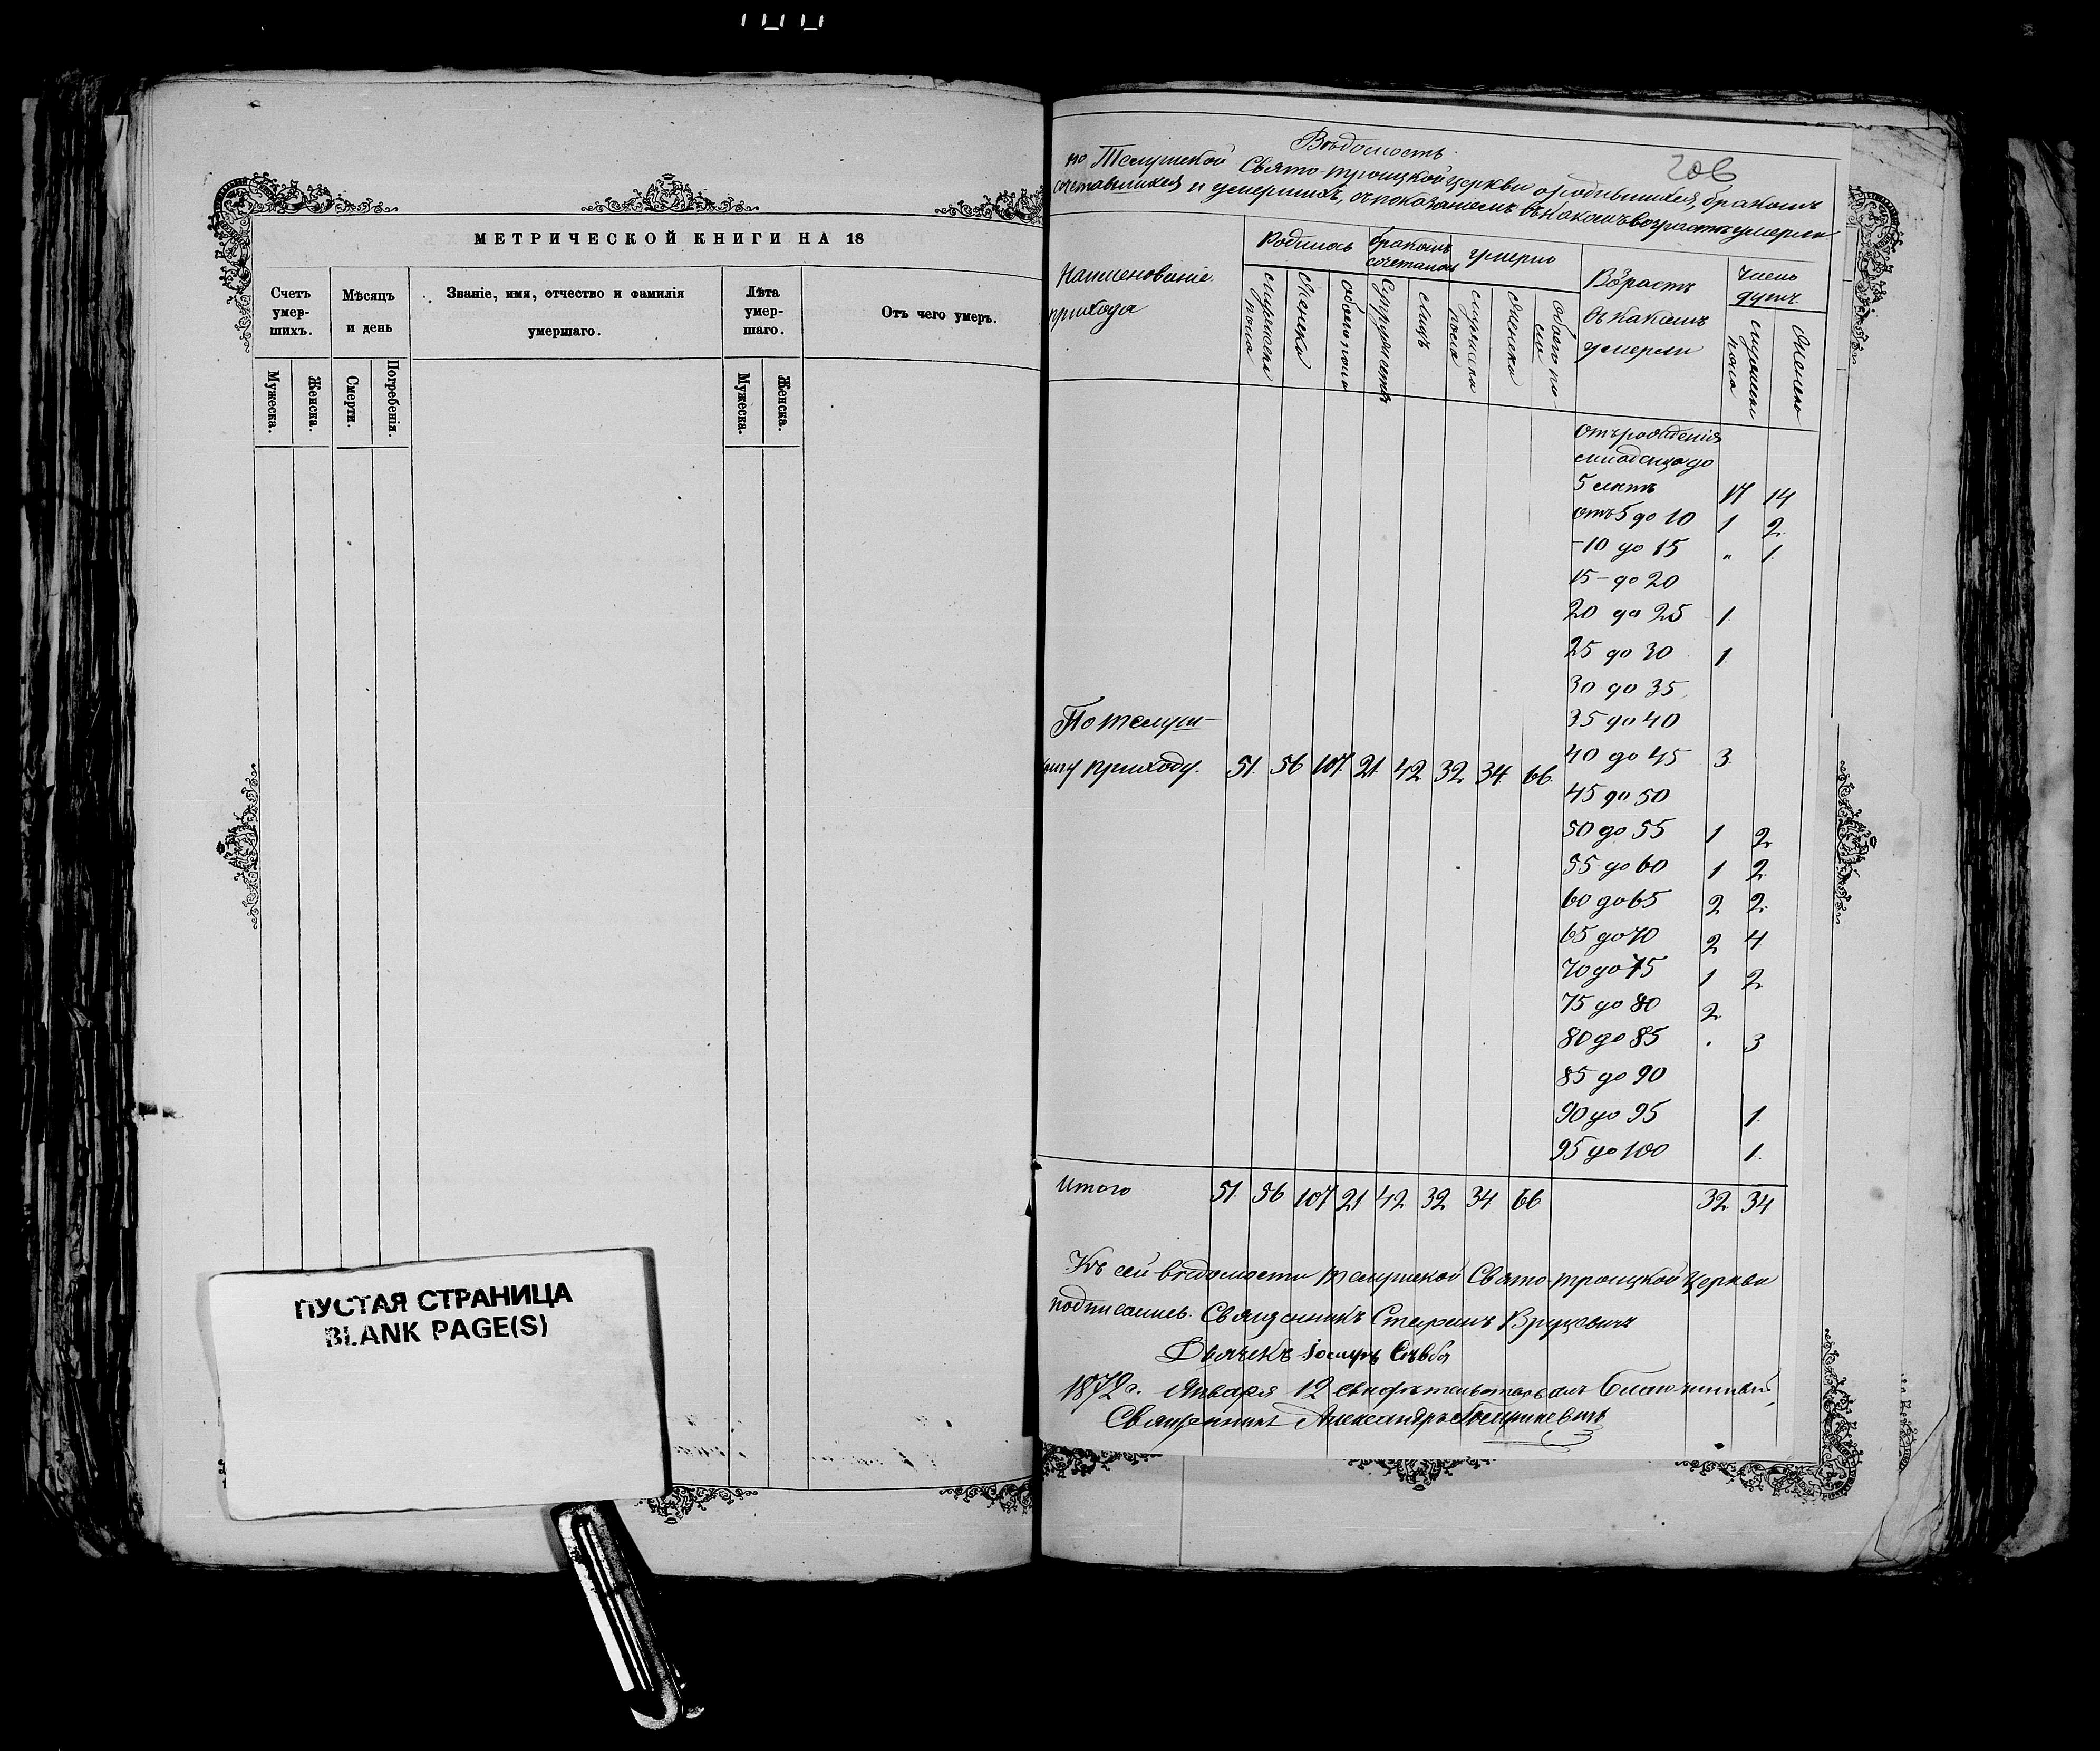 МЕТРИЧЕСКОЙ КНИГИ НА 18
Счетъ умер-шихъ.
Мѣсяцъ и день
Званіе, имя, отчество и фамилія умершаго.
Лѣта умер-шаго.
Отъ чего умеръ.
Мужеска.
Женска.
Смерти.
Погребенія.
Мужеска.
Женска.
ПУСТАЯ СТРАНИЦА
BLANK PAGE(S)
Вѣдомость
по Телушской Свято-троицкой церкви о родившихся, бракомъ
сочетавшихся и умершихъ, съ показаніемъ въ какомъ возрастѣ умерли
Наименованіе прихода
Родилось
бракомъ сочеталось
умерло
Возрастъ въ какомъ умерли
Число душъ
мужеска пола
женска
обоего пола
Супружествъ
лицъ
мужеска пола
женска
обоего пола
мужеска пола
женска
отъ рожденія
младенца до
5 лѣтъ 17 14
отъ 5 до 10 1 2
-10 до 15 " 1
15- до 20
20 до 25 1
25 до 30 1
30 до 35
35 до 40
40 до 45 3
45 до 50
50 до 55 1 2
55 до 60 1 2
60 до 65 2 2
65 до 70 2 4
70 до 75 1 2
75 до 80 2
80 до 85 . 3
85 до 90
90 до 95 1
95 до 100 1
По телуш-
приходу. 51 56 107 21 42 32 34 66
Итого 51 56 107 21 42 32 34 66 32 34
Къ сей вѣдомости телушской Свято-троицкой Церкви
подписались. Священникъ Стефанъ
Дьячекъ
1872 г. Января 12 свидѣтельствовалъ благочинный,
Священникъ Александръ